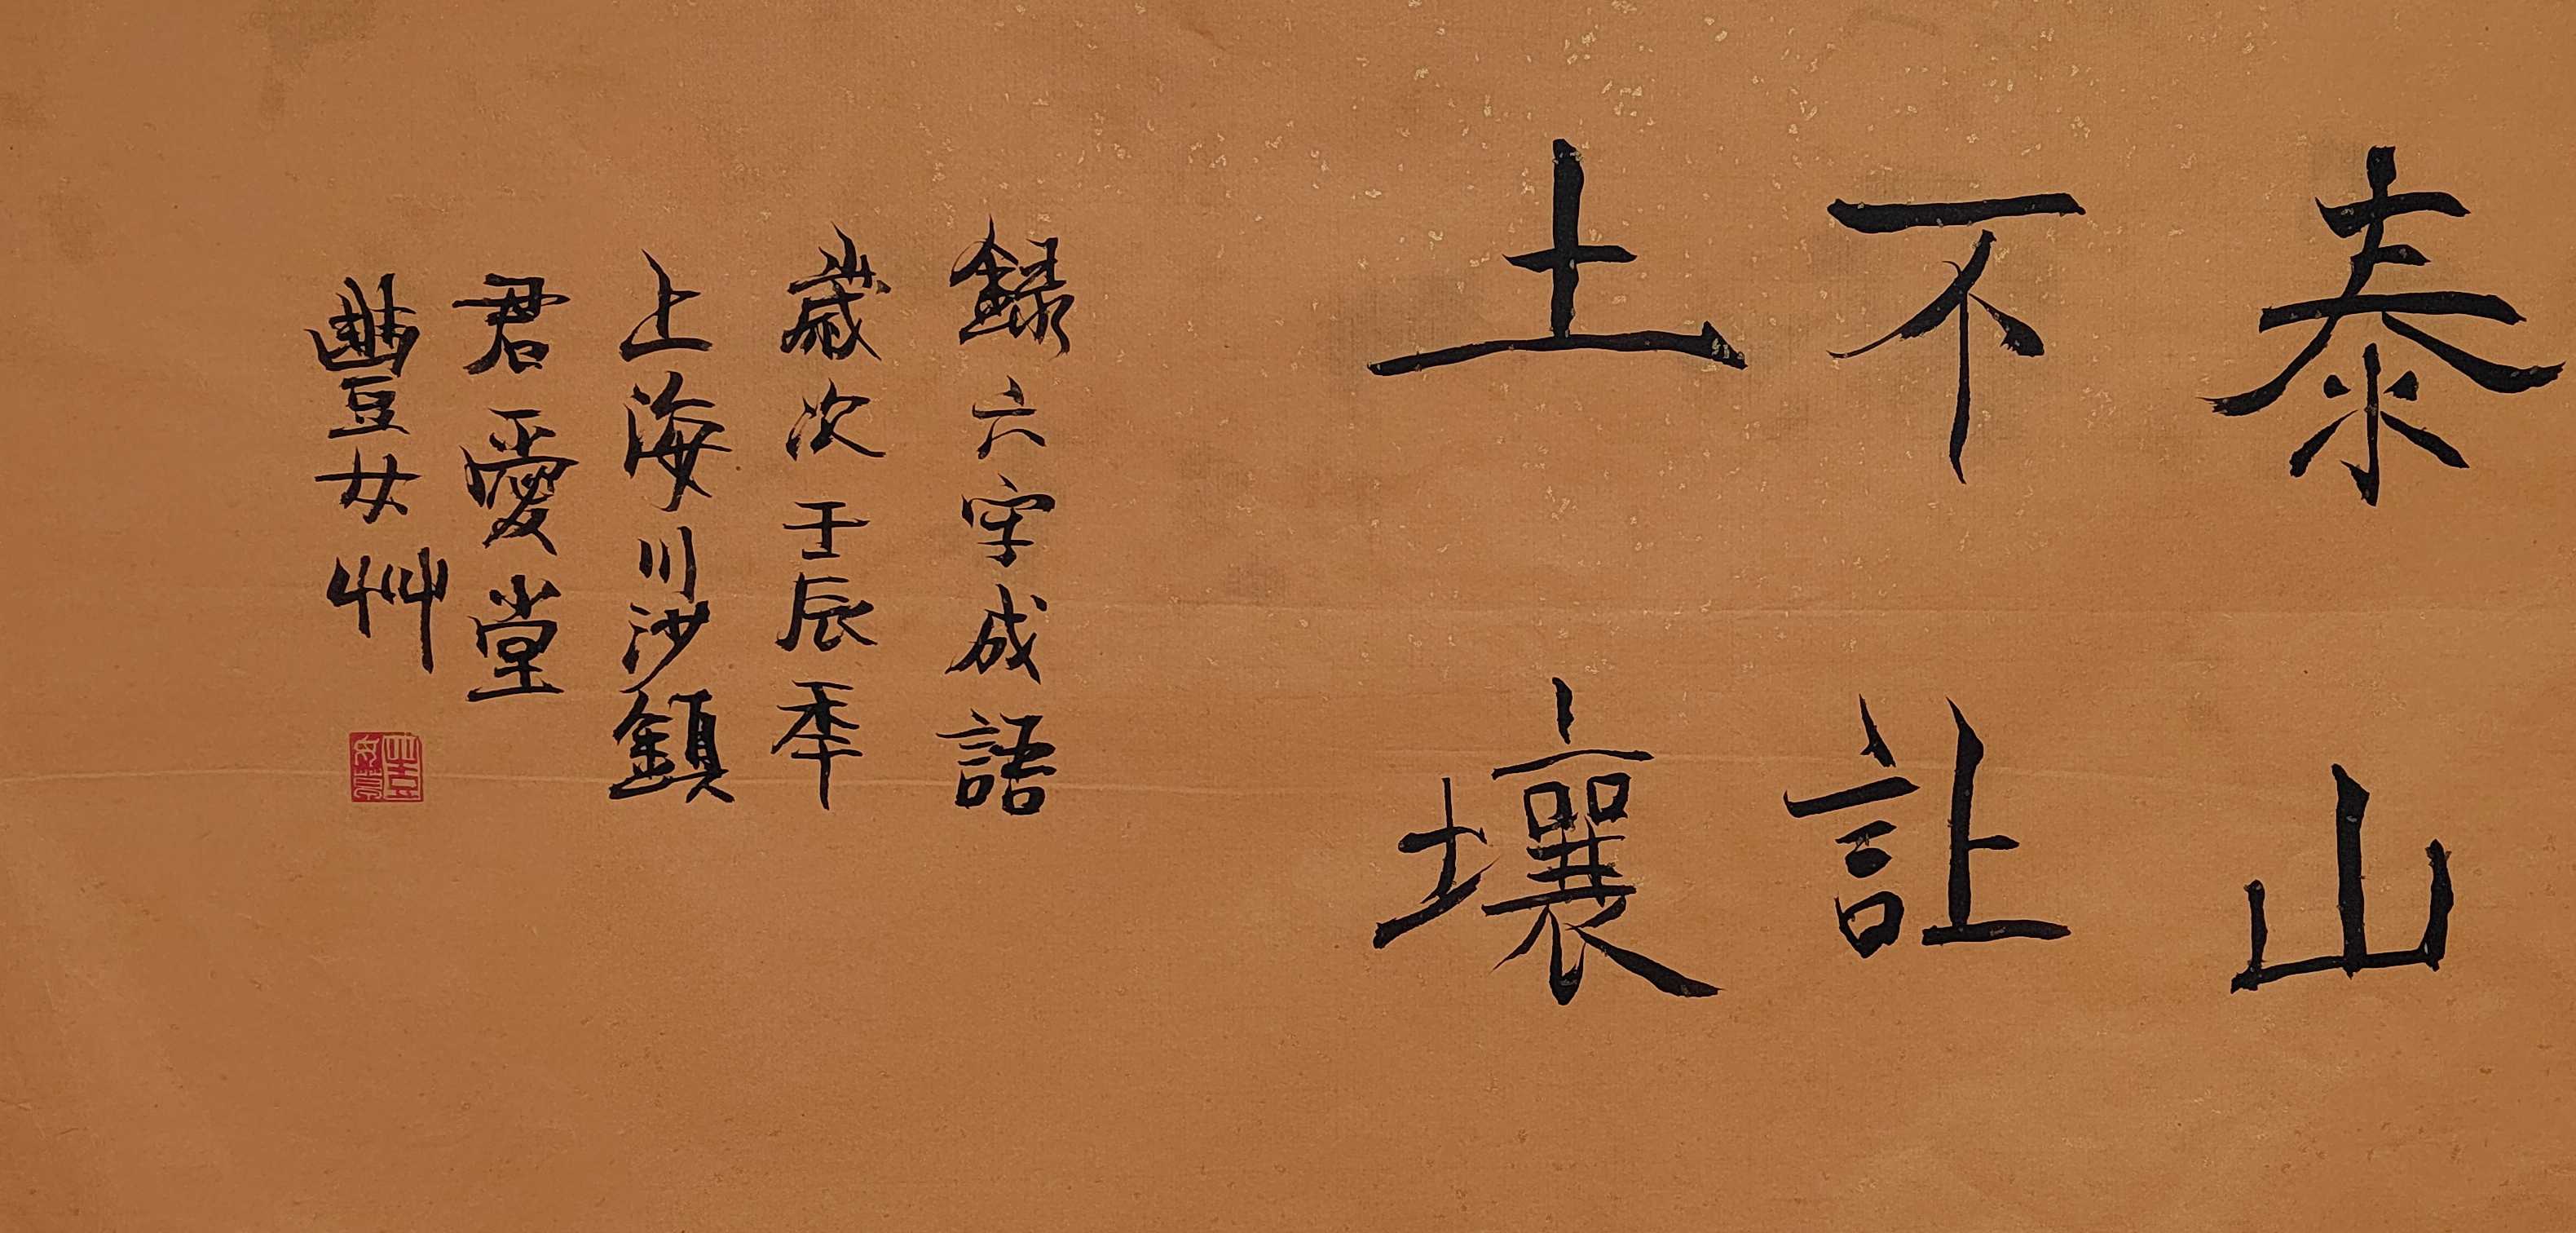 泰山
不讓
土壤
録六字成語
歲次壬辰季
上海川沙鎮
君愛堂
豐女艸